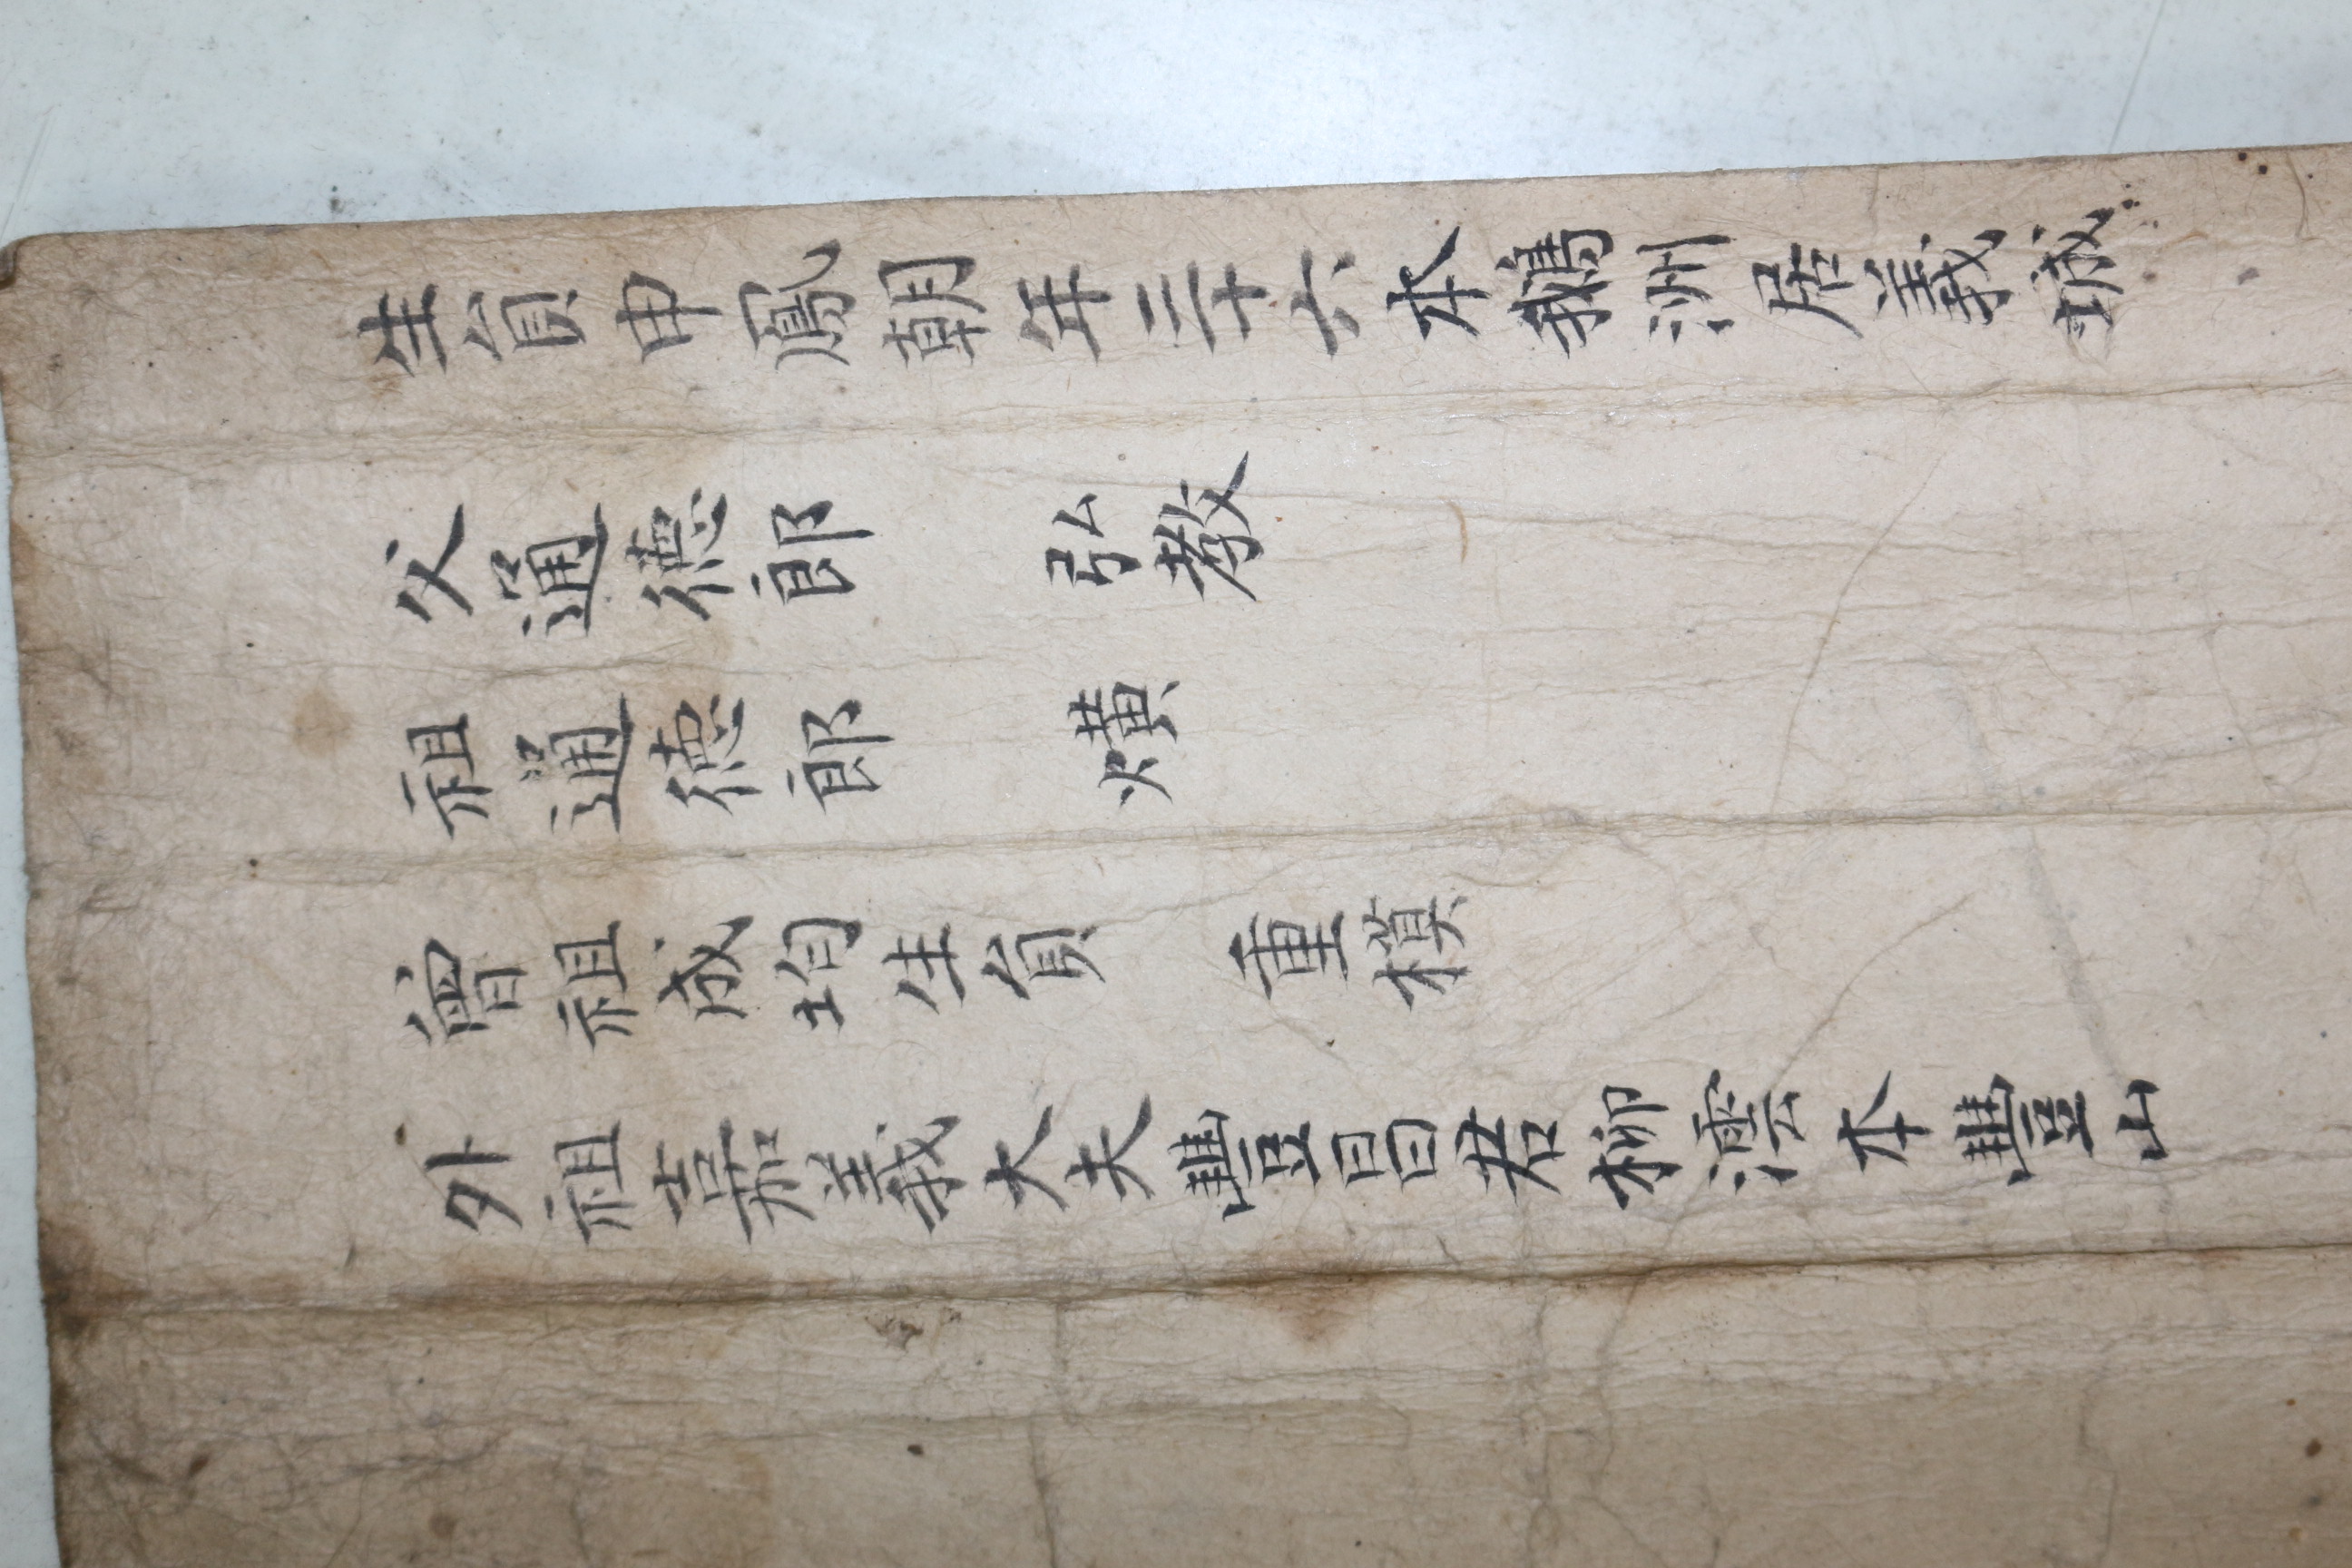 生員申鳳朝年三十六本鵝洲居義城
父通德郎 弘教
祖通德郎 熿
曾祖成均生員 重模
外祖嘉義大夫豐昌君柳澐本豐山